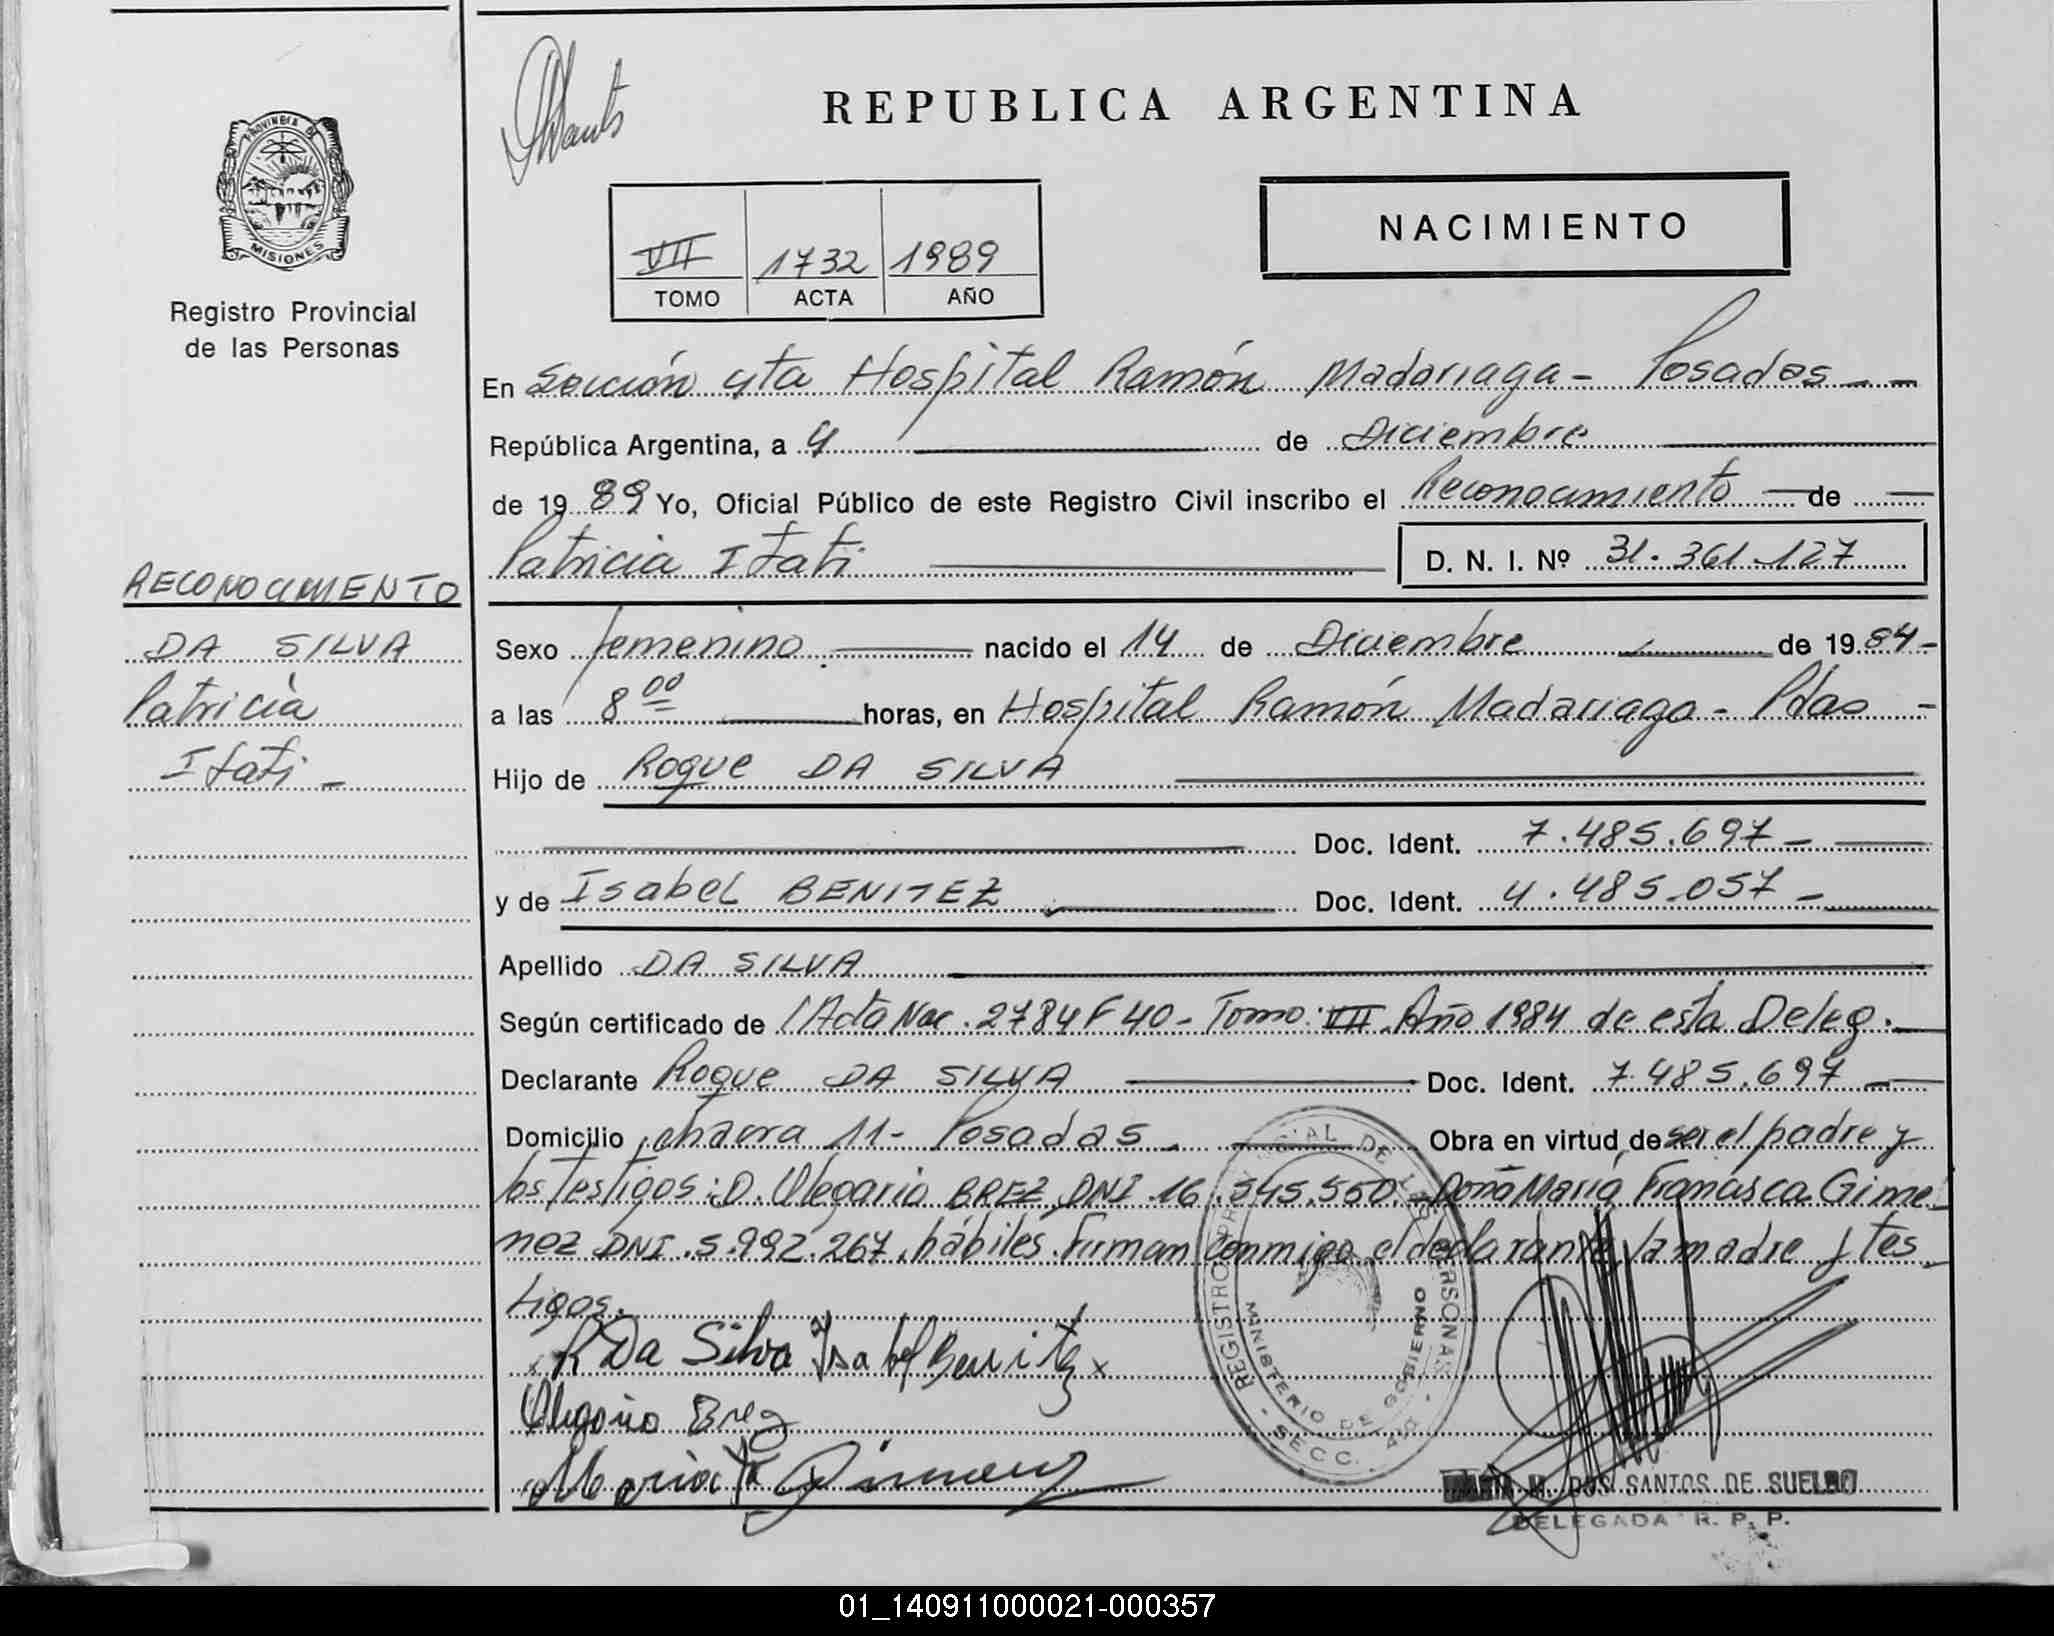 REPUBLICA ARGENTINA
NACIMIENTO
PROVINCIA DE
MISIONES
Registro Provincial
de las Personas
VII 1732 1989
TOMO ACTA AÑO
En Sección 4ta Hospital Ramón Madariaga - Posadas - -
República Argentina, a 4 de Diciembre
de 1989 Yo, Oficial Público de este Registro Civil inscribo el Reconocimiento de
Patricia Itati D. N. I. Nº 31.361.127
RECONOCIMIENTO
DA SILVA
Patricia
Itati -
Sexo femenino nacido el 14 de Diciembre de 1984 -
a las 8 00 horas, en Hospital Ramón Madariaga - Pdas -
Hijo de Roque DA SILVA
Doc. Ident. 7.485.697 -
y de Isabel BENITEZ Doc. Ident. 4.485.057 -
Apellido DA SILVA
Según certificado de Acta Nac. 2784 F 40 - Tomo: VII. Año 1984 de esta Deleg.
Declarante Roque DA SILVA Doc. Ident. 7.485.697
Domicilio chacra 11 - Posadas. Obra en virtud de ser el padre y
los testigos: D. Olegario BREZ DNI. 16.545.550. Doña María Francisca Gime
nez DNI. 5.992.267, hábiles. Firman conmigo el declarante, la madre y tes
tigos.
R Da Silva Isabel Benitez
Olegario Brez
Maria F. Gimenez
REGISTRO PROVINCIAL DE LAS PERSONAS
MINISTERIO DE GOBIERNO
- SECC. 4ta -
MARIA M. DOS SANTOS DE SUELDO
DELEGADA R. P. P.
01_140911000021-000357